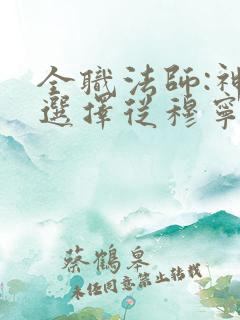 全職法師:神
選擇從穆寧
蔡鶴皋
未任同意禁止转载